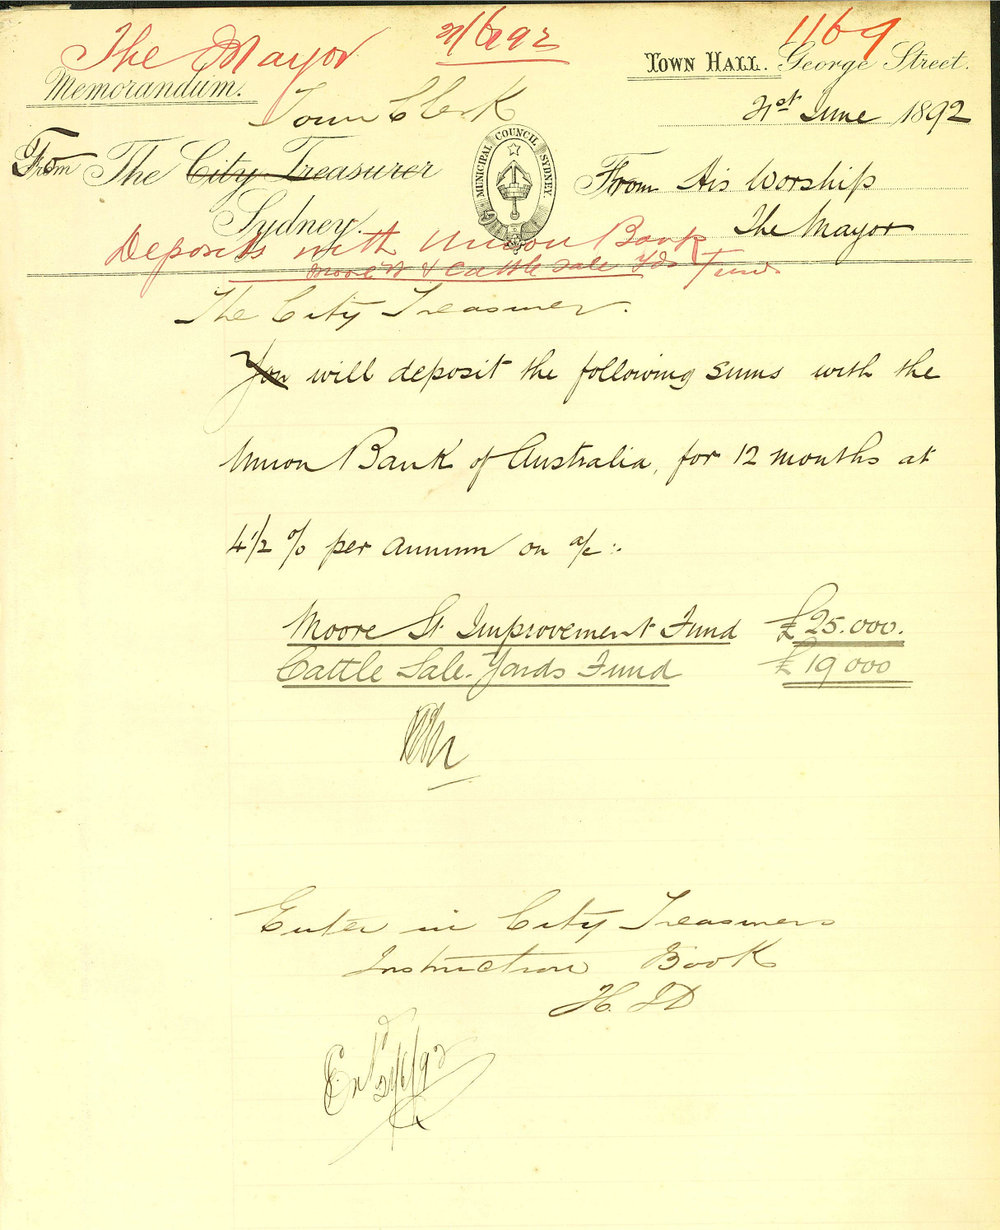 The Mayor 21/6/92 1169
Memorandum. TOWN HALL. George Street.
Town Clerk 21st June 1892
From The City Treasurer From His Worship
MUNICIPAL COUNCIL SYDNEY.
Sydney. The Mayor
Deposits with Union Bank
Moore St & Cattle Sale Yds Fund
The City Treasurer.
You will deposit the following sums with the
Union Bank of Australia, for 12 months at
4 1/2 % per annum on a/c :-
Moore St Improvement Fund £25.000.
Cattle Sale Yards Fund £19000
Enter in City Treasurers
Instruction Book
H. J D
Entd 21/6/92